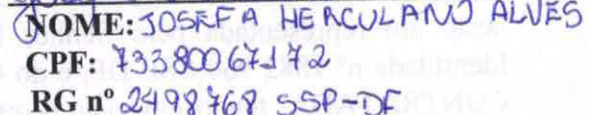 NOME: JOSEFA HERCULANO ALVES
CPF: 73380067172
RG nº 2498768 SSP-DF